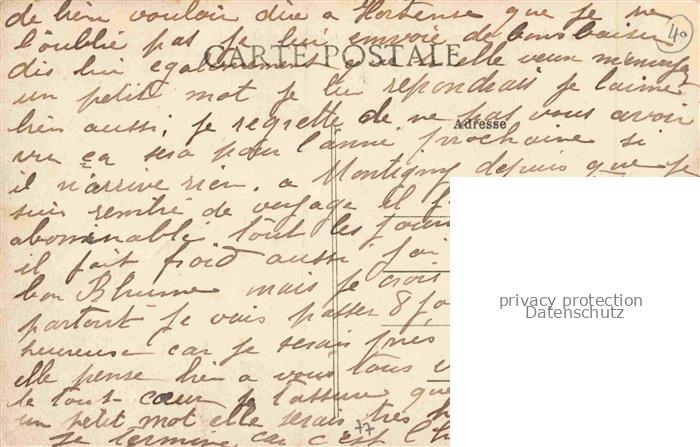 de bien vouloir dire a Hortense que je ne
l'oublie pas je lui envoie de bons baisers
40
CARTE POSTALE
dis lui egalement que si elle veux m'envoyer
un petit mot je lui repondrais je l'aime
bien aussi, je regrette de ne pas vous avoir
Adresse
vu ça sera pour l'anné prochaine si
il n'arrive rien. a Montigny depuis que je
suis rentré de voyage il f
abominable tout les jours
il fait froid aussi j'ai
bon Rhume mais je crois
partout je vais passer 8 jo
heureuse car je serais près
elle pense bien a vous tous
le tout cœur je t'assure que
un petit mot elle serais très h
77
Je termine car c'est l'h
privacy protection
Datenschutz